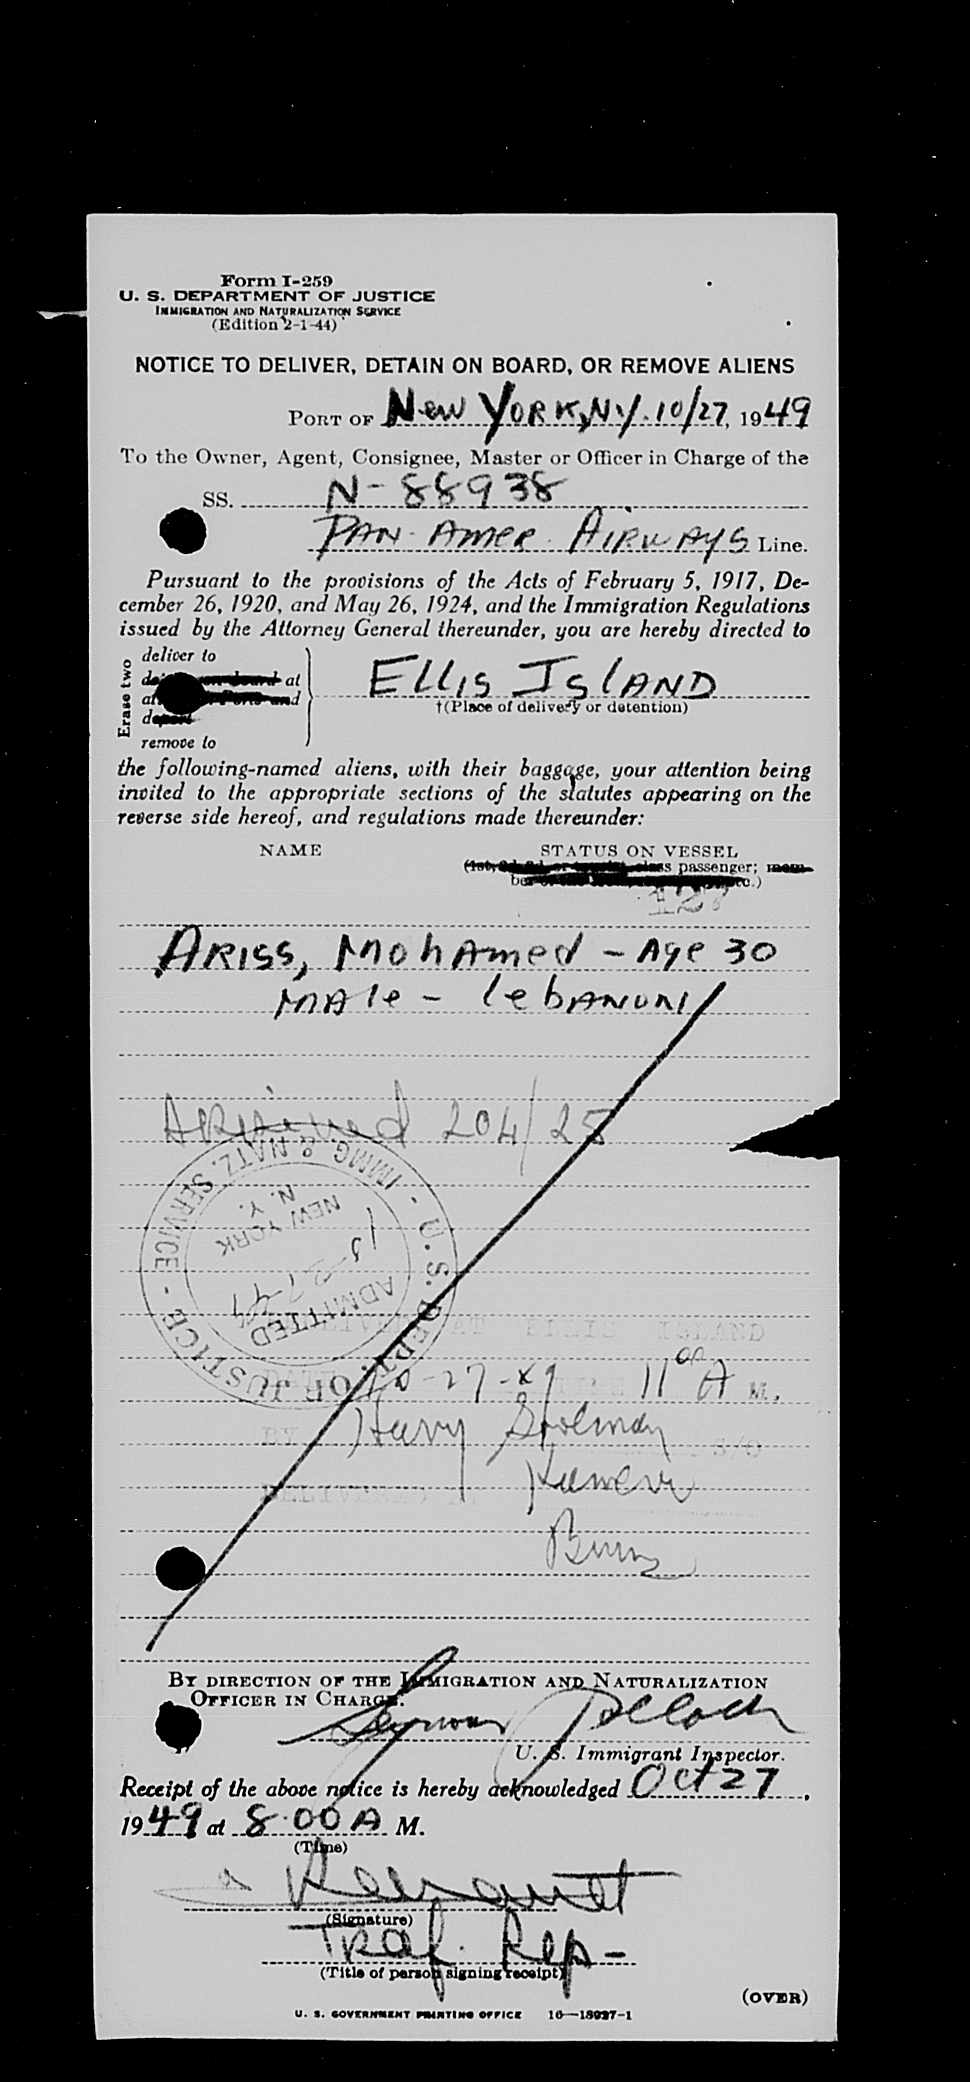 Form I-259
U. S. DEPARTMENT OF JUSTICE
IMMIGRATION AND NATURALIZATION SERVICE
(Edition 2-1-44)
NOTICE TO DELIVER, DETAIN ON BOARD, OR REMOVE ALIENS
PORT OF New York, N.Y. 10/27, 1949
To the Owner, Agent, Consignee, Master or Officer in Charge of the
SS. N-88938
Pan Amer Airways Line.
Pursuant to the provisions of the Acts of February 5, 1917, De-
cember 26, 1920, and May 26, 1924, and the Immigration Regulations
issued by the Attorney General thereunder, you are hereby directed to
Erase two
deliver to
at
depart
remove to
Ellis Island
†(Place of delivery or detention)
the following-named aliens, with their baggage, your attention being
invited to the appropriate sections of the statutes appearing on the
reverse side hereof, and regulations made thereunder:
NAME STATUS ON VESSEL
class passenger; mem-
etc.)
127
Ariss, Mohamed - Age 30
Male - Lebanon
204/25
U.S. DEPT. OF JUSTICE - IMMIG & NATZ. SERVICE -
NEW YORK
N. Y.
10-27-49
ADMITTED
AT ELLIS ISLAND
10-27-49 11 00 A M.
BY Harry S/O
DELIVERED
BY DIRECTION OF THE IMMIGRATION AND NATURALIZATION
OFFICER IN CHARGE.
Seymour
U. S. Immigrant Inspector.
Receipt of the above notice is hereby acknowledged Oct 27,
1949 at 8:00 A M.
(Time)
(Signature)
Traf. Rep-
(Title of person signing receipt)
(OVER)
U. S. GOVERNMENT PRINTING OFFICE 16—18027-1